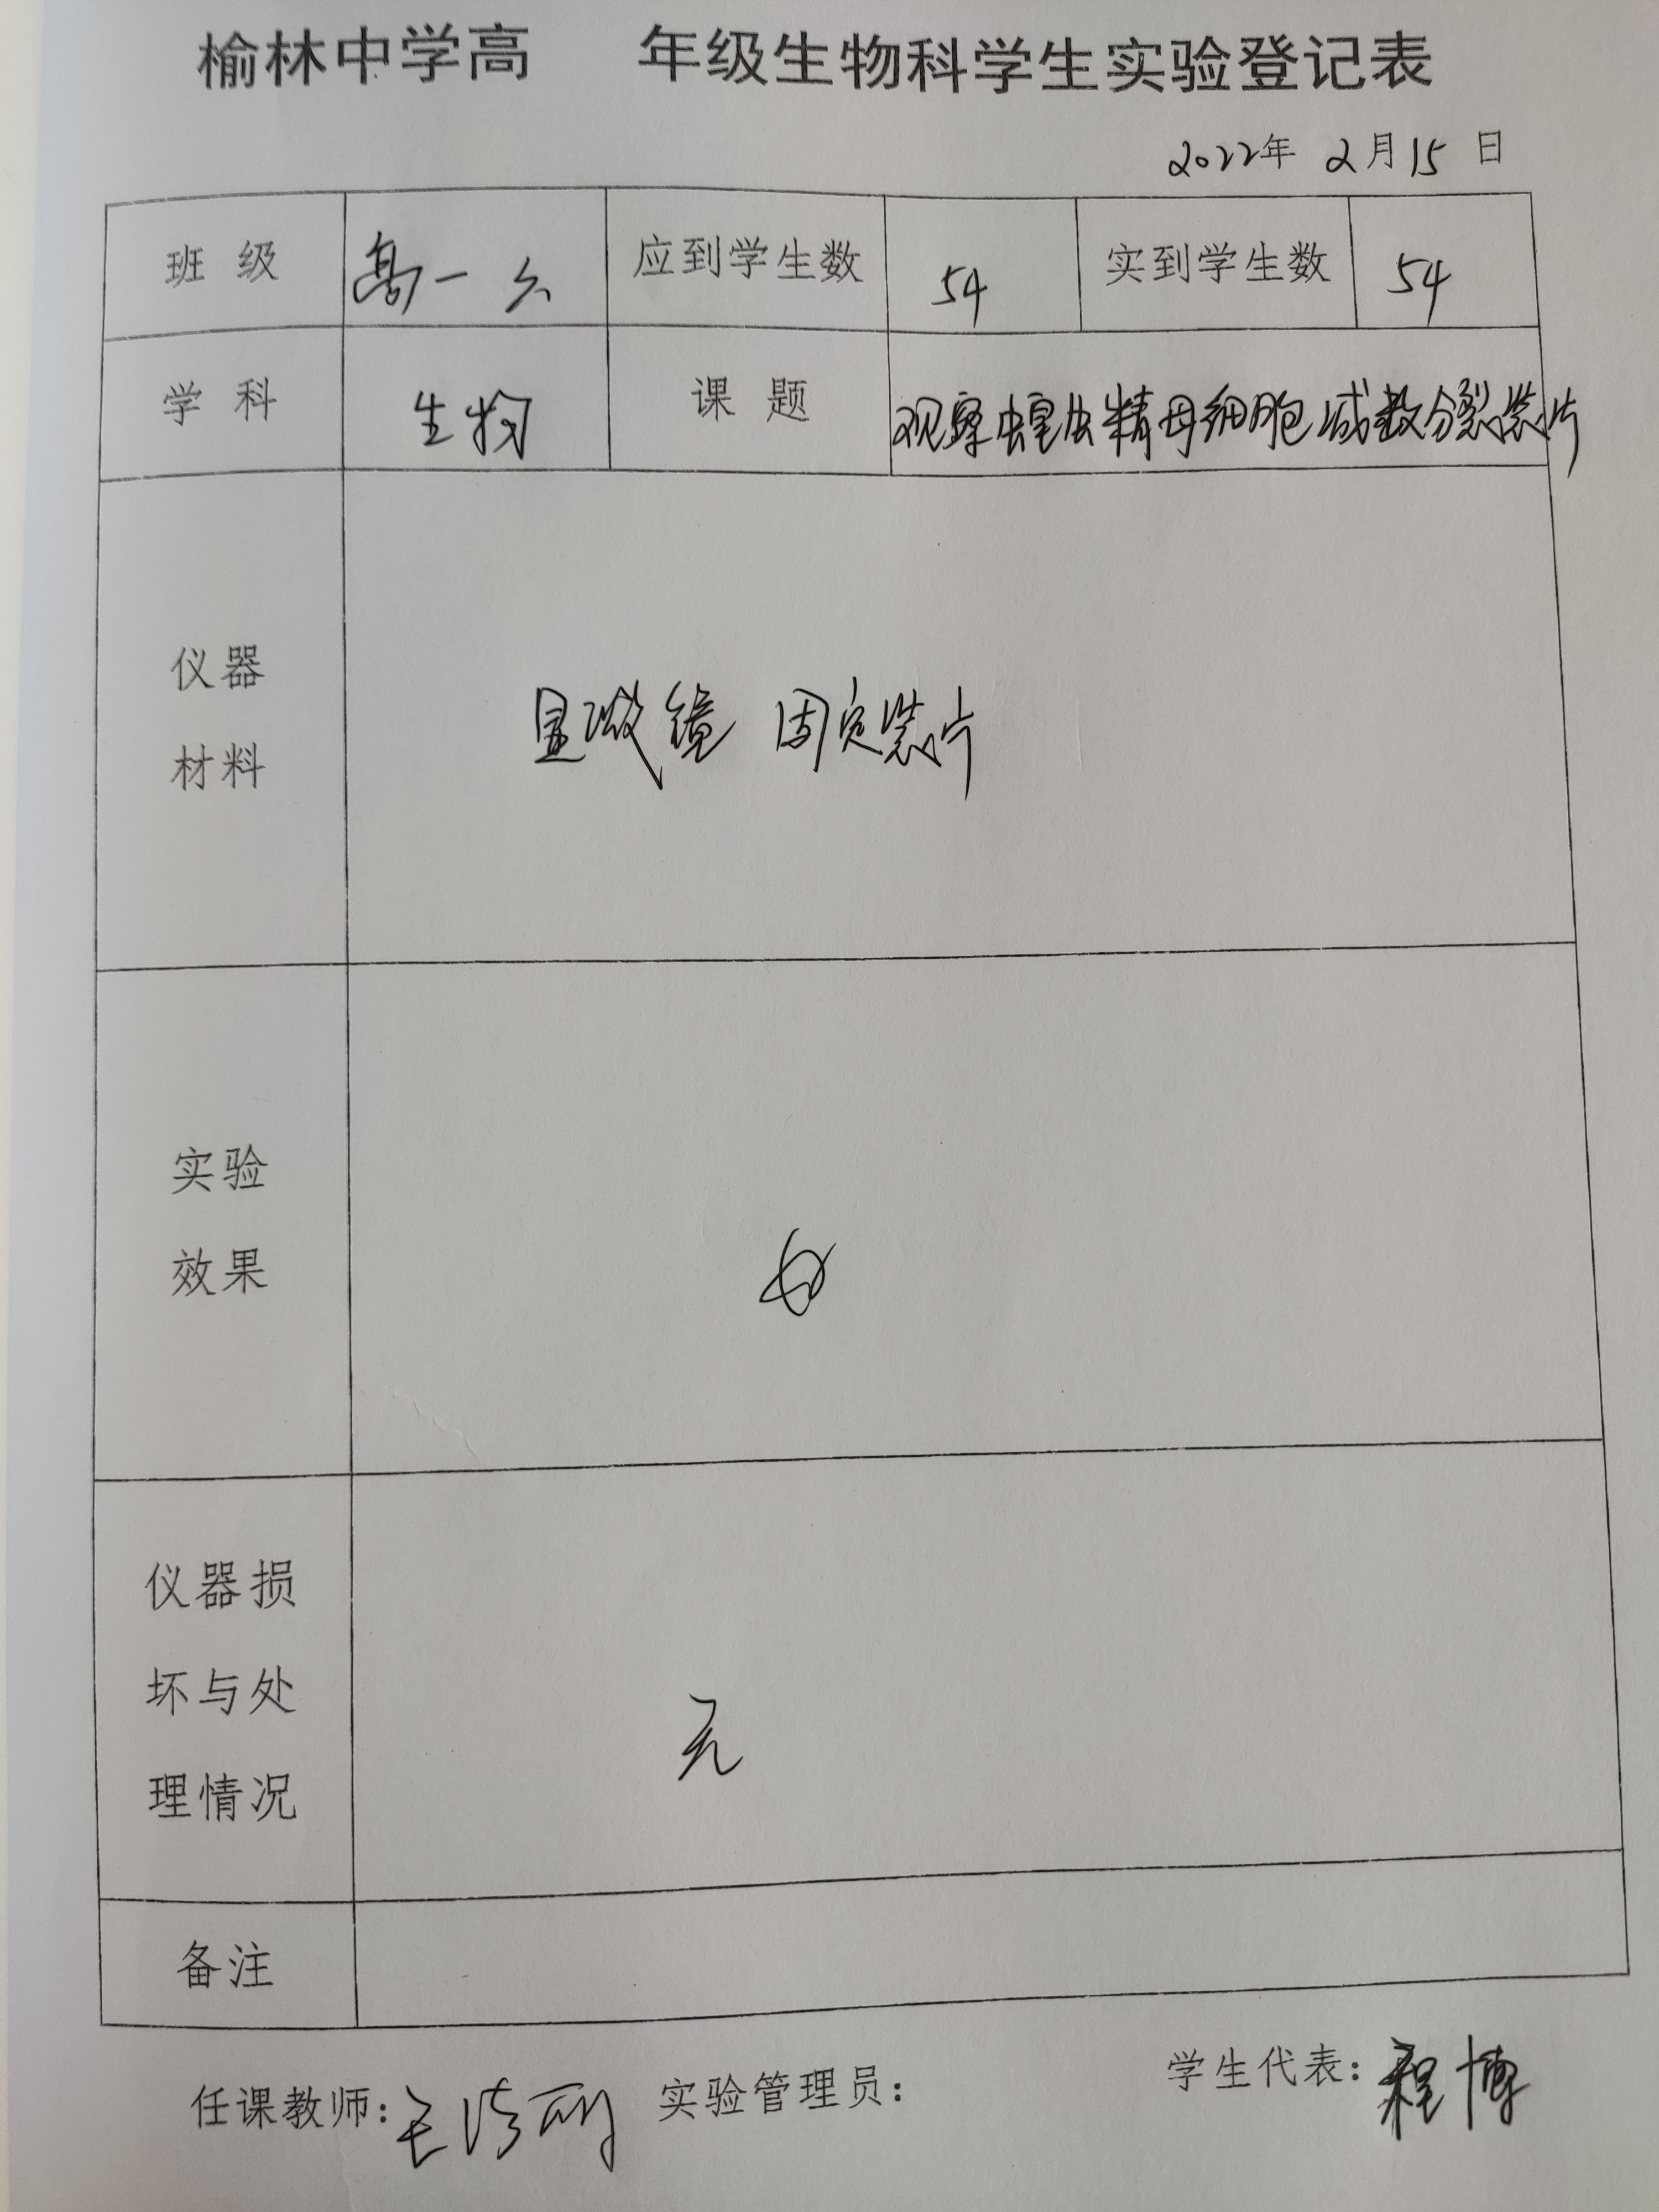 榆林中学高 年级生物科学生实验登记表
2022年 2月15日
班 级 高一 六 应到学生数 54 实到学生数 54
学 科 生物 课 题 观察蝗虫精母细胞减数分裂装片
仪器
材料
显微镜 固定装片
实验
效果
仪器损
坏与处
理情况
无
备注
任课教师: 实验管理员: 学生代表: 程博